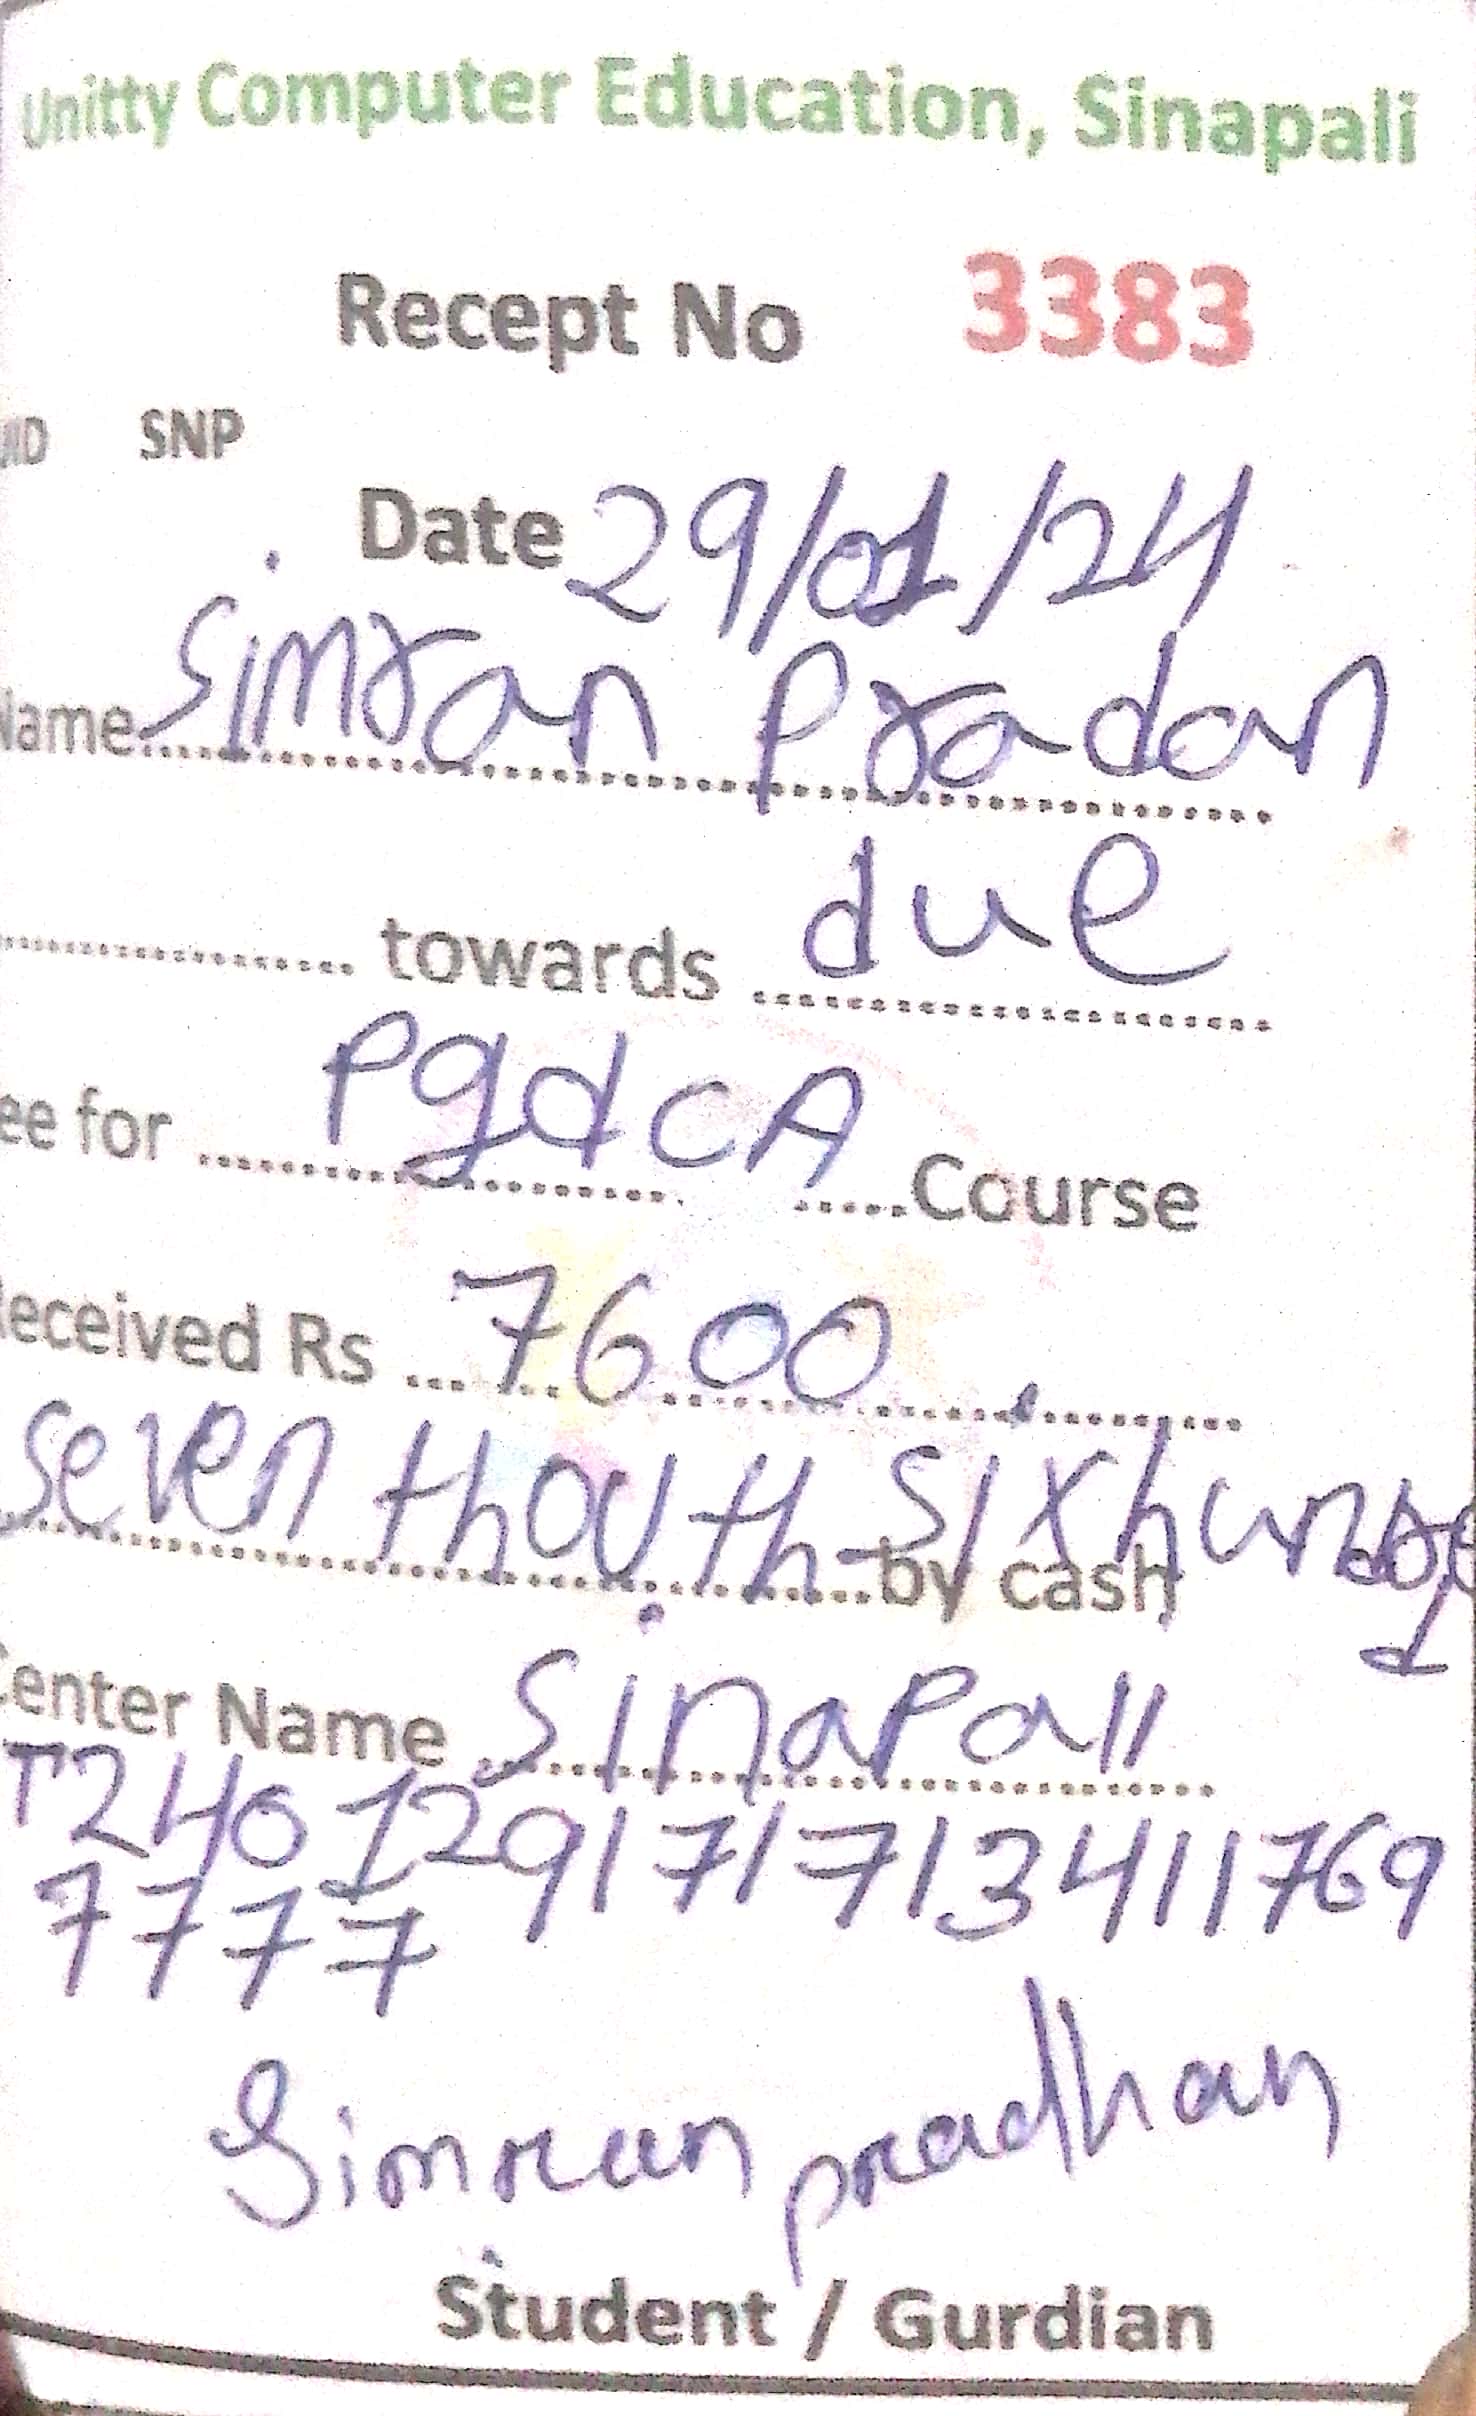 Unitty Computer Education, Sinapali
Recept No 3383
SNP
Date 29/01/24
Name Simran Pradan
towards due
ee for PgdCA Course
eceived Rs 7600
Seven thouth Six hundred
by cash
Center Name Sinapali
T240129171713411769
7777
Simran pradhan
Student / Gurdian